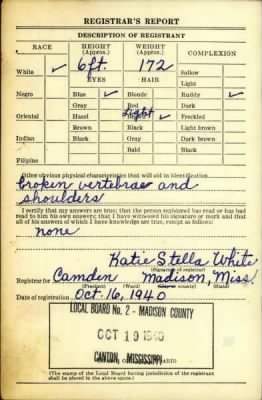 REGISTRAR'S REPORT
DESCRIPTION OF REGISTRANT
RACE HEIGHT (Approx.) WEIGHT (Approx.) COMPLEXION
6ft. 172
White ✓ EYES HAIR Sallow
Light
Negro Blue ✓ Blonde Ruddy ✓
Gray Red Dark
Oriental Hazel Light ✓ Freckled
Brown Black Light brown
Indian Black Gray Dark brown
Bald Black
Filipino
Other obvious physical characteristics that will aid in identification
broken vertebrae and
shoulders
I certify that my answers are true; that the person registered has read or has had
read to him his own answers; that I have witnessed his signature or mark and that
all of his answers of which I have knowledge are true, except as follows:
none
Katie Stella White
(Signature of registrar)
Registrar for Camden Madison, Miss.
(City or county) (State)
Date of registration Oct. 16, 1940
LOCAL BOARD No. 2 - MADISON COUNTY
OCT 19 1940
CANTON, MISSISSIPPI
(The stamp of the Local Board having jurisdiction of the registrant
shall be placed in the above space.)